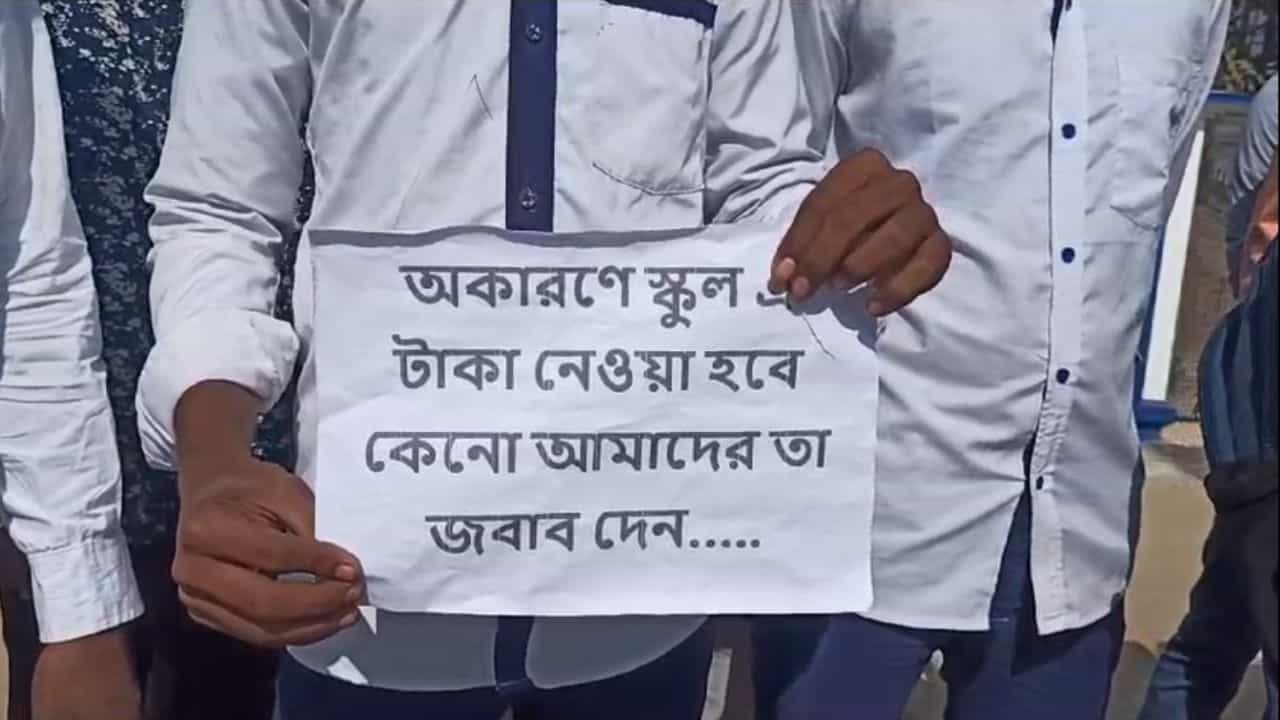 অকারণে স্কুল এ
টাকা নেওয়া হবে
কেনো আমাদের তা
জবাব দেন.....